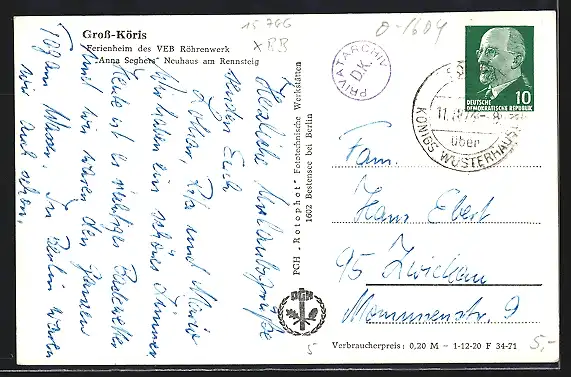 Groß-Köris
Ferienheim des VEB Röhrenwerk
"Anna Seghers" Neuhaus am Rennsteig
15 766
XBB
0-1604
PRIVATARCHIV
D.K.
DEUTSCHE
DEMOKRATISCHE REPUBLIK
10
über
KÖNIGS WUSTERHAUSEN
Herzliche Urlaubsgrüße
senden Euch
Lothar, Ria und
Wir haben ein schönes Zimmer
Heute ist es richtiges Badewetter
und wir waren den ganzen
Tag am Wasser. In Berlin waren
wir auch schon.
PGH „Rotophot" Fototechnische Werkstätten
1602 Bestensee bei Berlin
PGH
Fam.
Hans Ebert
95 Zwickau
9
Verbraucherpreis: 0,20 M – 1-12-20 F 34-71
5
5,-